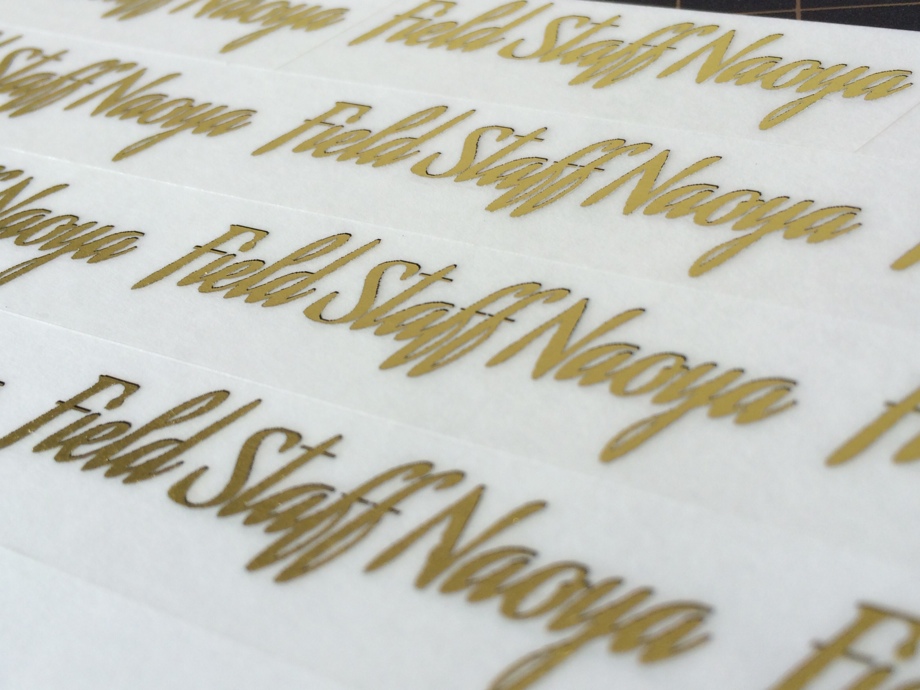 Field Staff Naoya
Field Staff Naoya
Staff Naoya Field Staff Naoya
Naoya Field Staff Naoya
Field Staff Naoya